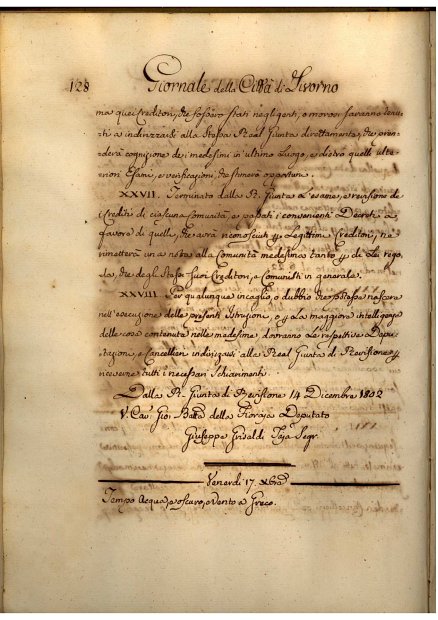 128 Giornale della Città di Livorno
ma quei Creditori, che fossero stati negligenti, o morosi saranno tenu-
ti a indirizzarsi alla stessa Real Giunta direttamente, che pren-
derà cognizione dei medesimi in ultimo luogo, e dietro quelli ulte-
riori Esami, e verificazioni, che stimerà opportune.
XXVII. Terminato dalla R. Giunta l'esame, e revisione de
Crediti di ciascuna Comunità, e passati i convenienti Decreti a
favore di quelli, che avrà riconosciuti p. Legittimi Creditori, ne
rimetterà una nota alla Comunità medesima tanto p. di Lei rego
la, che degli stessi suoi Creditori, e Comunisti in generale.
XXVIII. Per qualunque incaglio, o dubbio che potesse nascere
nell'esecuzione delle presenti Istruzioni, o p. La maggiore intelligenza
delle cose contenute nelle medesime dovranno Le respettive Depu-
tazioni, e Cancellieri indirizzarsi alla Real Giunta di Revisione p.
riceverne tutti i necessari schiarimenti.
Dalla R. Giunta di Revisione 14 Dicembre 1802
V. Cav. Gio. Batta della Fioraja Deputato
Giuseppe Grisaldi Taja Segr.
Venerdì 17. Xbre
Tempo Acqua, e oscuro, e Vento a Greco.